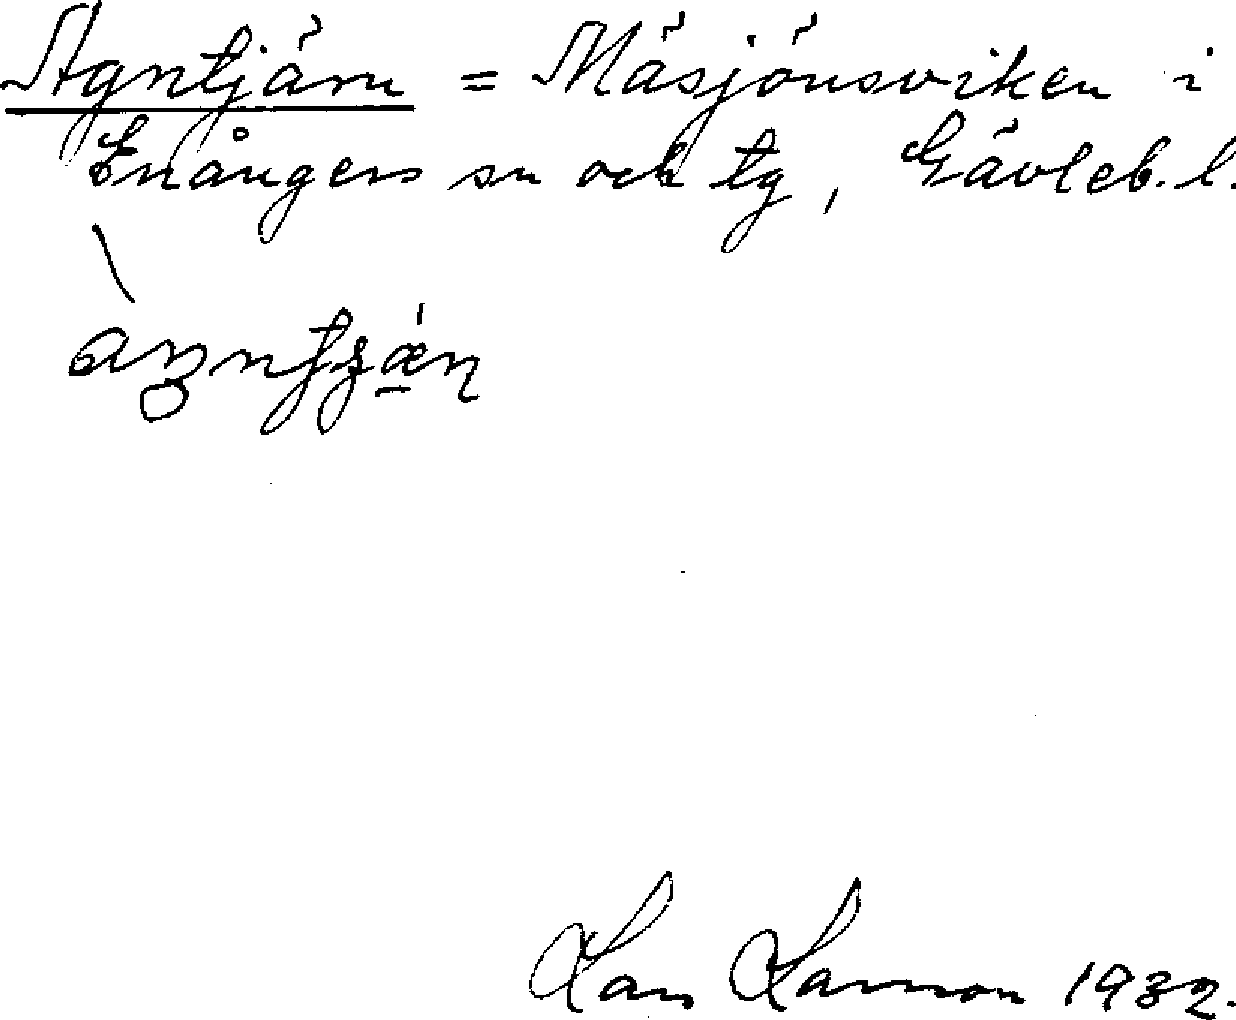 Agntjärn = Mäsjönsviken i
Enångers sn och tg, Gävleb. l.
Lars Larsson 1932.